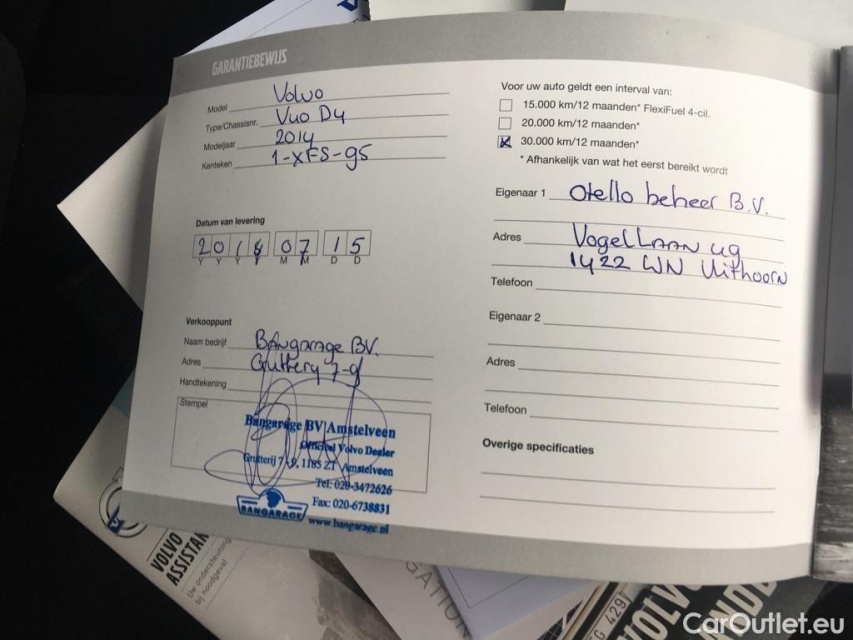 GARANTIEBEWIJS
Model Volvo
Type/Chassisnr. V40 D4
Modeljaar 2014
Kenteken 1-XFS-95
Datum van levering
2014 07 15
Y Y Y Y M M D D
Verkooppunt
Naam bedrijf Bangarage BV.
Adres 7-9
Handtekening
Stempel
Bangarage BV Amstelveen
Official Volvo Dealer
Gruttterij 7-9, 1185 ZT Amstelveen
Tel: 020-3472626
Fax: 020-6738831
BANGARAGE
www.bangarage.nl
Voor uw auto geldt een interval van:
15.000 km/12 maanden* FlexiFuel 4-cil.
20.000 km/12 maanden*
30.000 km/12 maanden*
* Afhankelijk van wat het eerst bereikt wordt
Eigenaar 1 Otello beheer B.V.
Adres Vogellaan 49
1422 WN Uithoorn
Telefoon
Eigenaar 2
Adres
Telefoon
Overige specificaties
VOLVO
ASSISTAN
Uw ondersteuning
bij noodgeval
GATION
G 429
VOLV
CarOutlet.eu